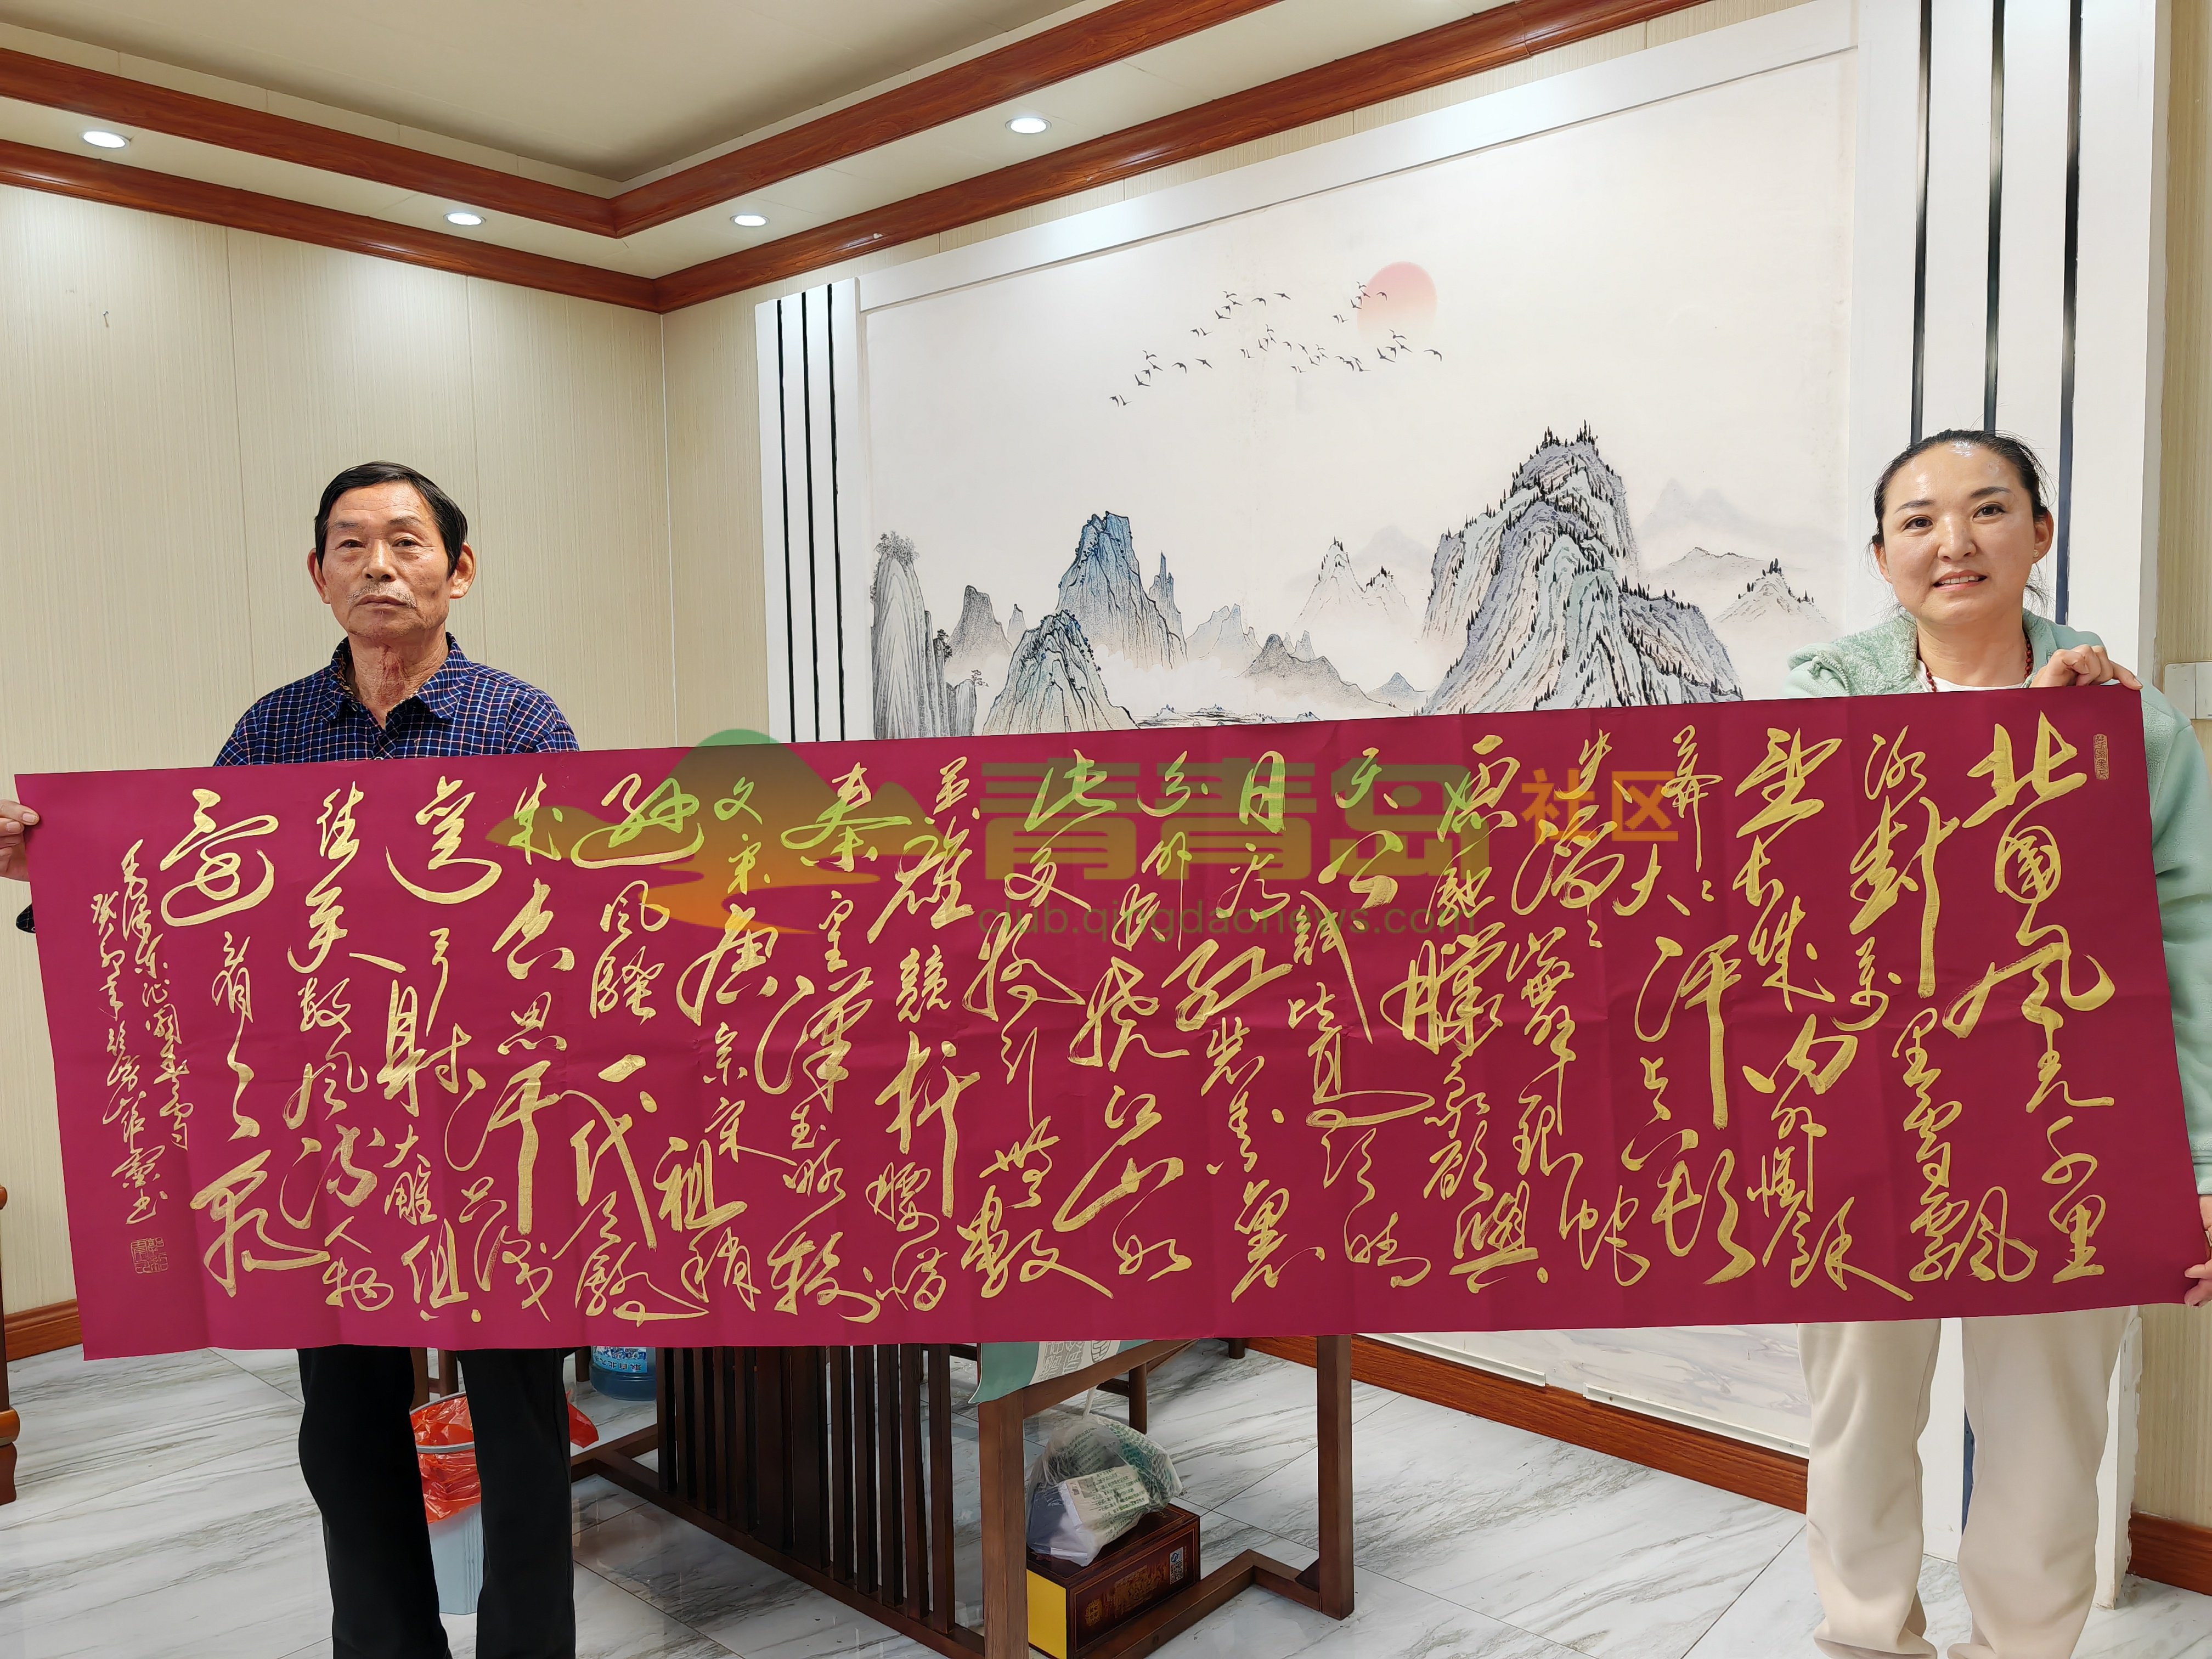 北國风光千里
冰封万里雪飄
望长城内外惟餘
莽々大河上下顿
失滔々山舞银蛇
原驰蜡象欲與
天公试比高须晴
日看红装素裹
分外妖娆江山如
此多娇引無數
英雄競折腰惜
秦皇漢武略输
文采唐宗宋祖稍
逊风骚一代天骄
成吉思汗只识
弯弓射大雕俱
往矣数风流人物
还看今朝
毛泽东沁園春雪
癸卯年
青青岛社区
club.qingdaonews.com